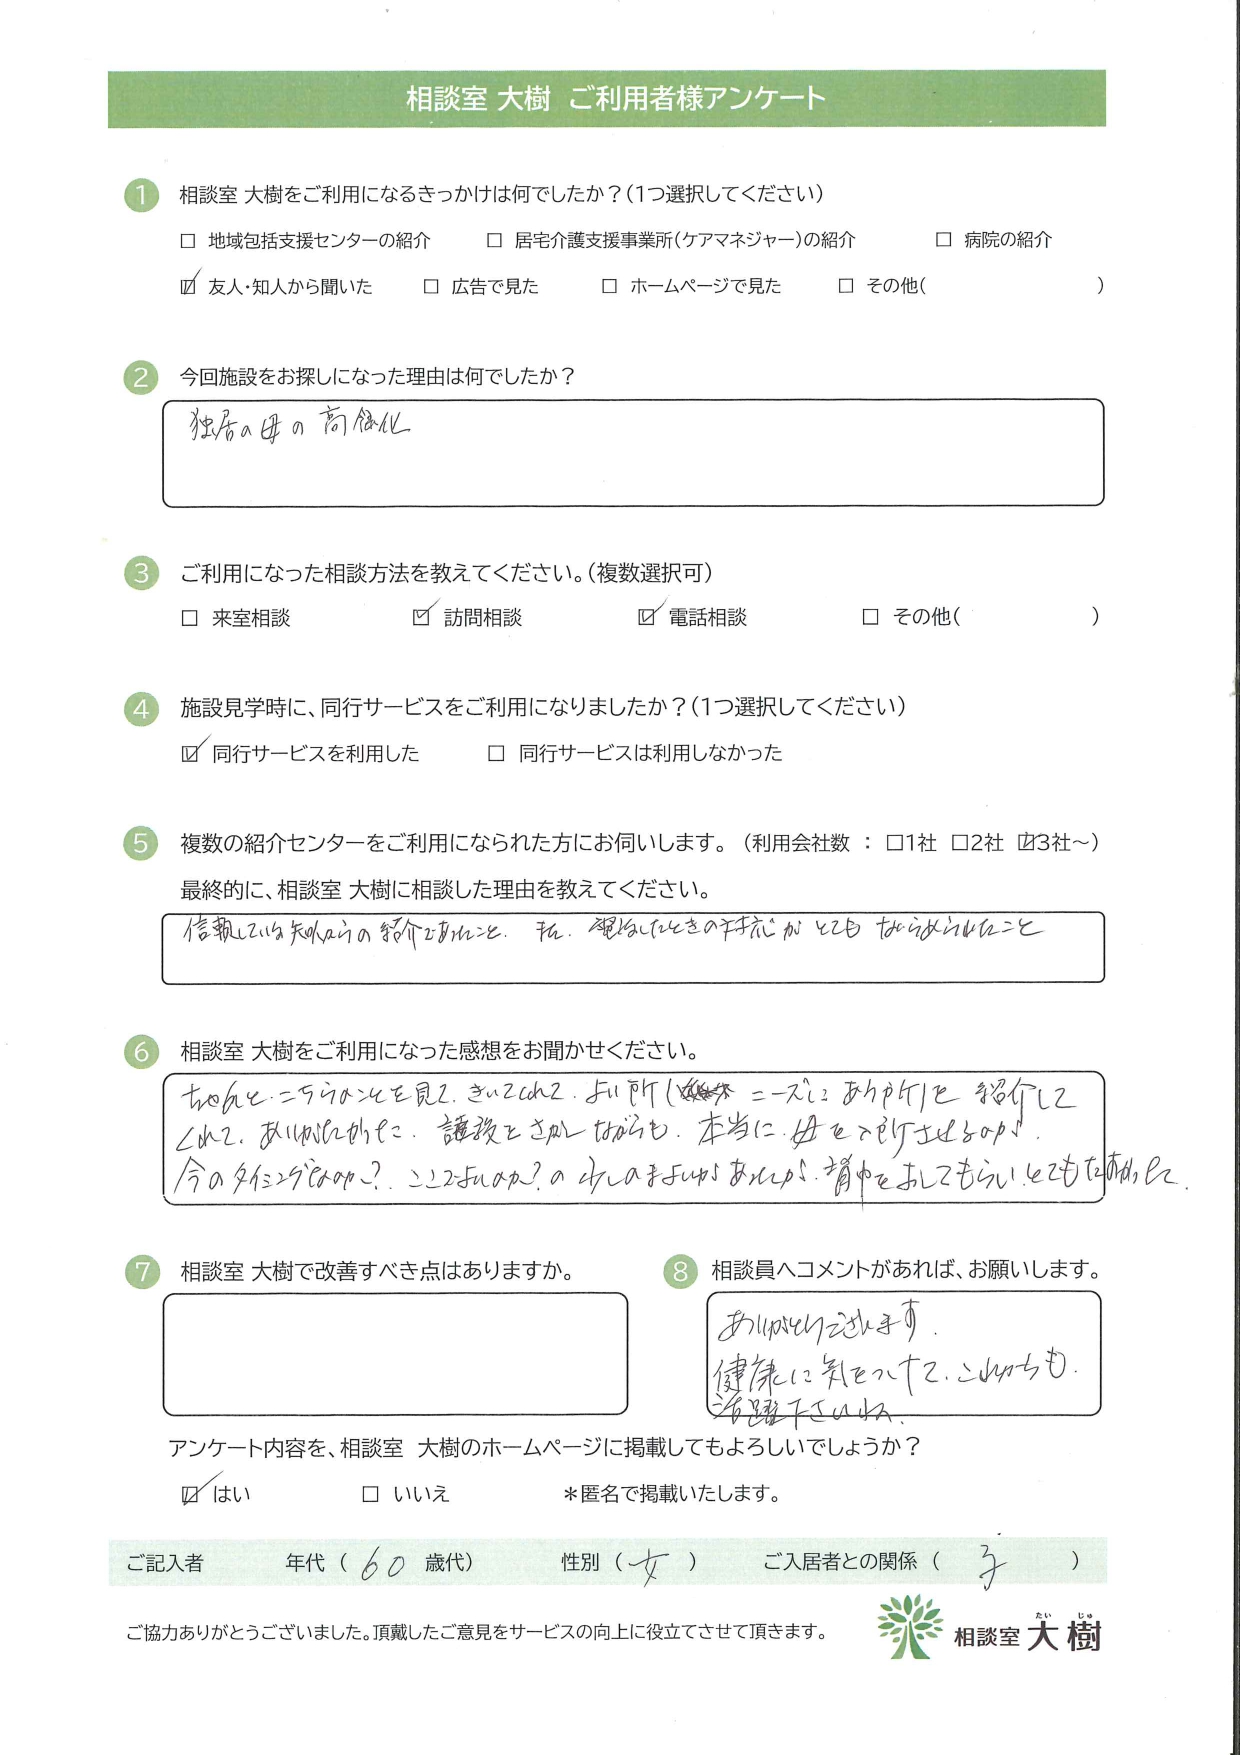 相談室 大樹 ご利用者様アンケート
1 相談室 大樹をご利用になるきっかけは何でしたか？(1つ選択してください)
□ 地域包括支援センターの紹介 □ 居宅介護支援事業所(ケアマネジャー)の紹介 □ 病院の紹介
☑ 友人・知人から聞いた □ 広告で見た □ ホームページで見た □ その他( )
2 今回施設をお探しになった理由は何でしたか？
独居の母の高齢化
3 ご利用になった相談方法を教えてください。(複数選択可)
□ 来室相談 ☑ 訪問相談 ☑ 電話相談 □ その他( )
4 施設見学時に、同行サービスをご利用になりましたか？(1つ選択してください)
☑ 同行サービスを利用した □ 同行サービスは利用しなかった
5 複数の紹介センターをご利用になられた方にお伺いします。(利用会社数 ： □1社 □2社 ☑3社～)
最終的に、相談室 大樹に相談した理由を教えてください。
信頼している知人からの紹介であったこと. また. 電話したときの対応がとても なこと
6 相談室 大樹をご利用になった感想をお聞かせください。
ちゃんと こちらのことを見て. きいてくれて. よい所 ( ニーズに あう所)を 紹介して
くれて. ありがたかった. 議をさかしながらも. 本当に. 母を入所させるのか.
今のタイミングなのか?. ここでよいのか? の 少しのまよいが あったが. 背中をおしてもらい. とても たすかった.
7 相談室 大樹で改善すべき点はありますか。
8 相談員へコメントがあれば、お願いします。
ありがとうございます.
健康に気をつけて. これからも.
活躍下さいね.
アンケート内容を、相談室 大樹のホームページに掲載してもよろしいでしょうか？
☑ はい □ いいえ ＊匿名で掲載いたします。
ご記入者 年代 ( 60 歳代) 性別 ( 女 ) ご入居者との関係 ( 子 )
ご協力ありがとうございました。頂戴したご意見をサービスの向上に役立てさせて頂きます。
たい じゅ
相談室 大樹